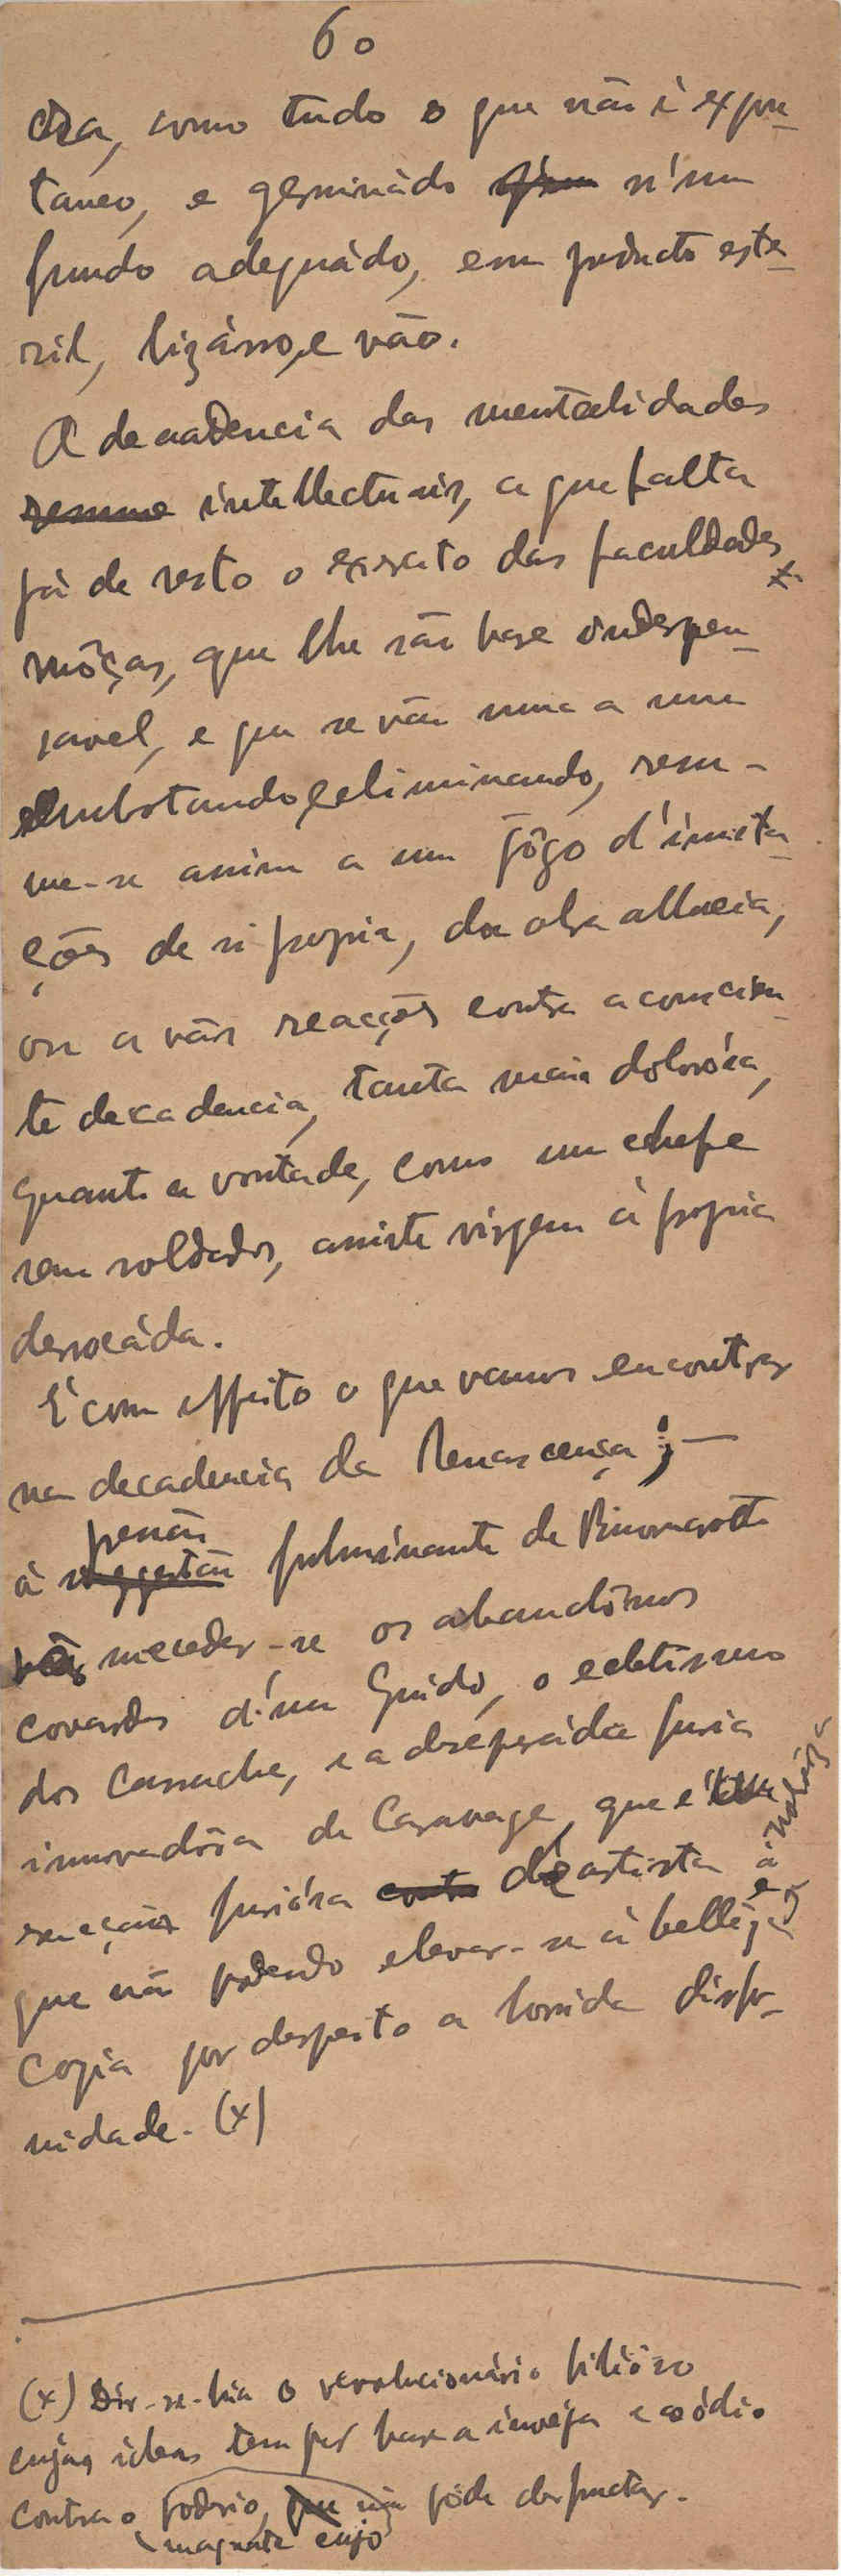 60
óra, como tudo o que não é expon-
taneo, e germinádo n'um
fundo adequádo, em producto este-
ril, bizárro, e vão.
A decadencia das mentalidades
intellectuais, a que falta
já de resto o exercito das faculdades
môças, que lhe são base indespen-
savel, e que se vão uma a uma
embotando, e eliminando, resu-
me-se assim a um jôgo d'imita-
ções de si propria, da obra alheia,
ou a vãs reacções contra a consciên-
te decadencia, tanto mais dolorósa,
quanto a vontade, como um chefe
sem soldados, assiste virgem á propria
derrocáda.
É com effeito o que vamos encontrar
na decadencia da Renascença; —
á pressão fulminante de Buonarotti
succeder-se os abandônos
covardes d'um Guido, o ecletismo
dos Carrache, e a desesperáda furia
innovadôra de Caravage, que é
reacção furiósa do artista
que não podendo elevar-se á bellêza e á nobrêza
copia por despeito a horrida disfor-
midade. (x)
(x) Dir-se-hia o revolucionário biliôso
cujas ideas tem por base a inveja e o ódio
contra o poderio, não póde desfructar.
magnate cujo